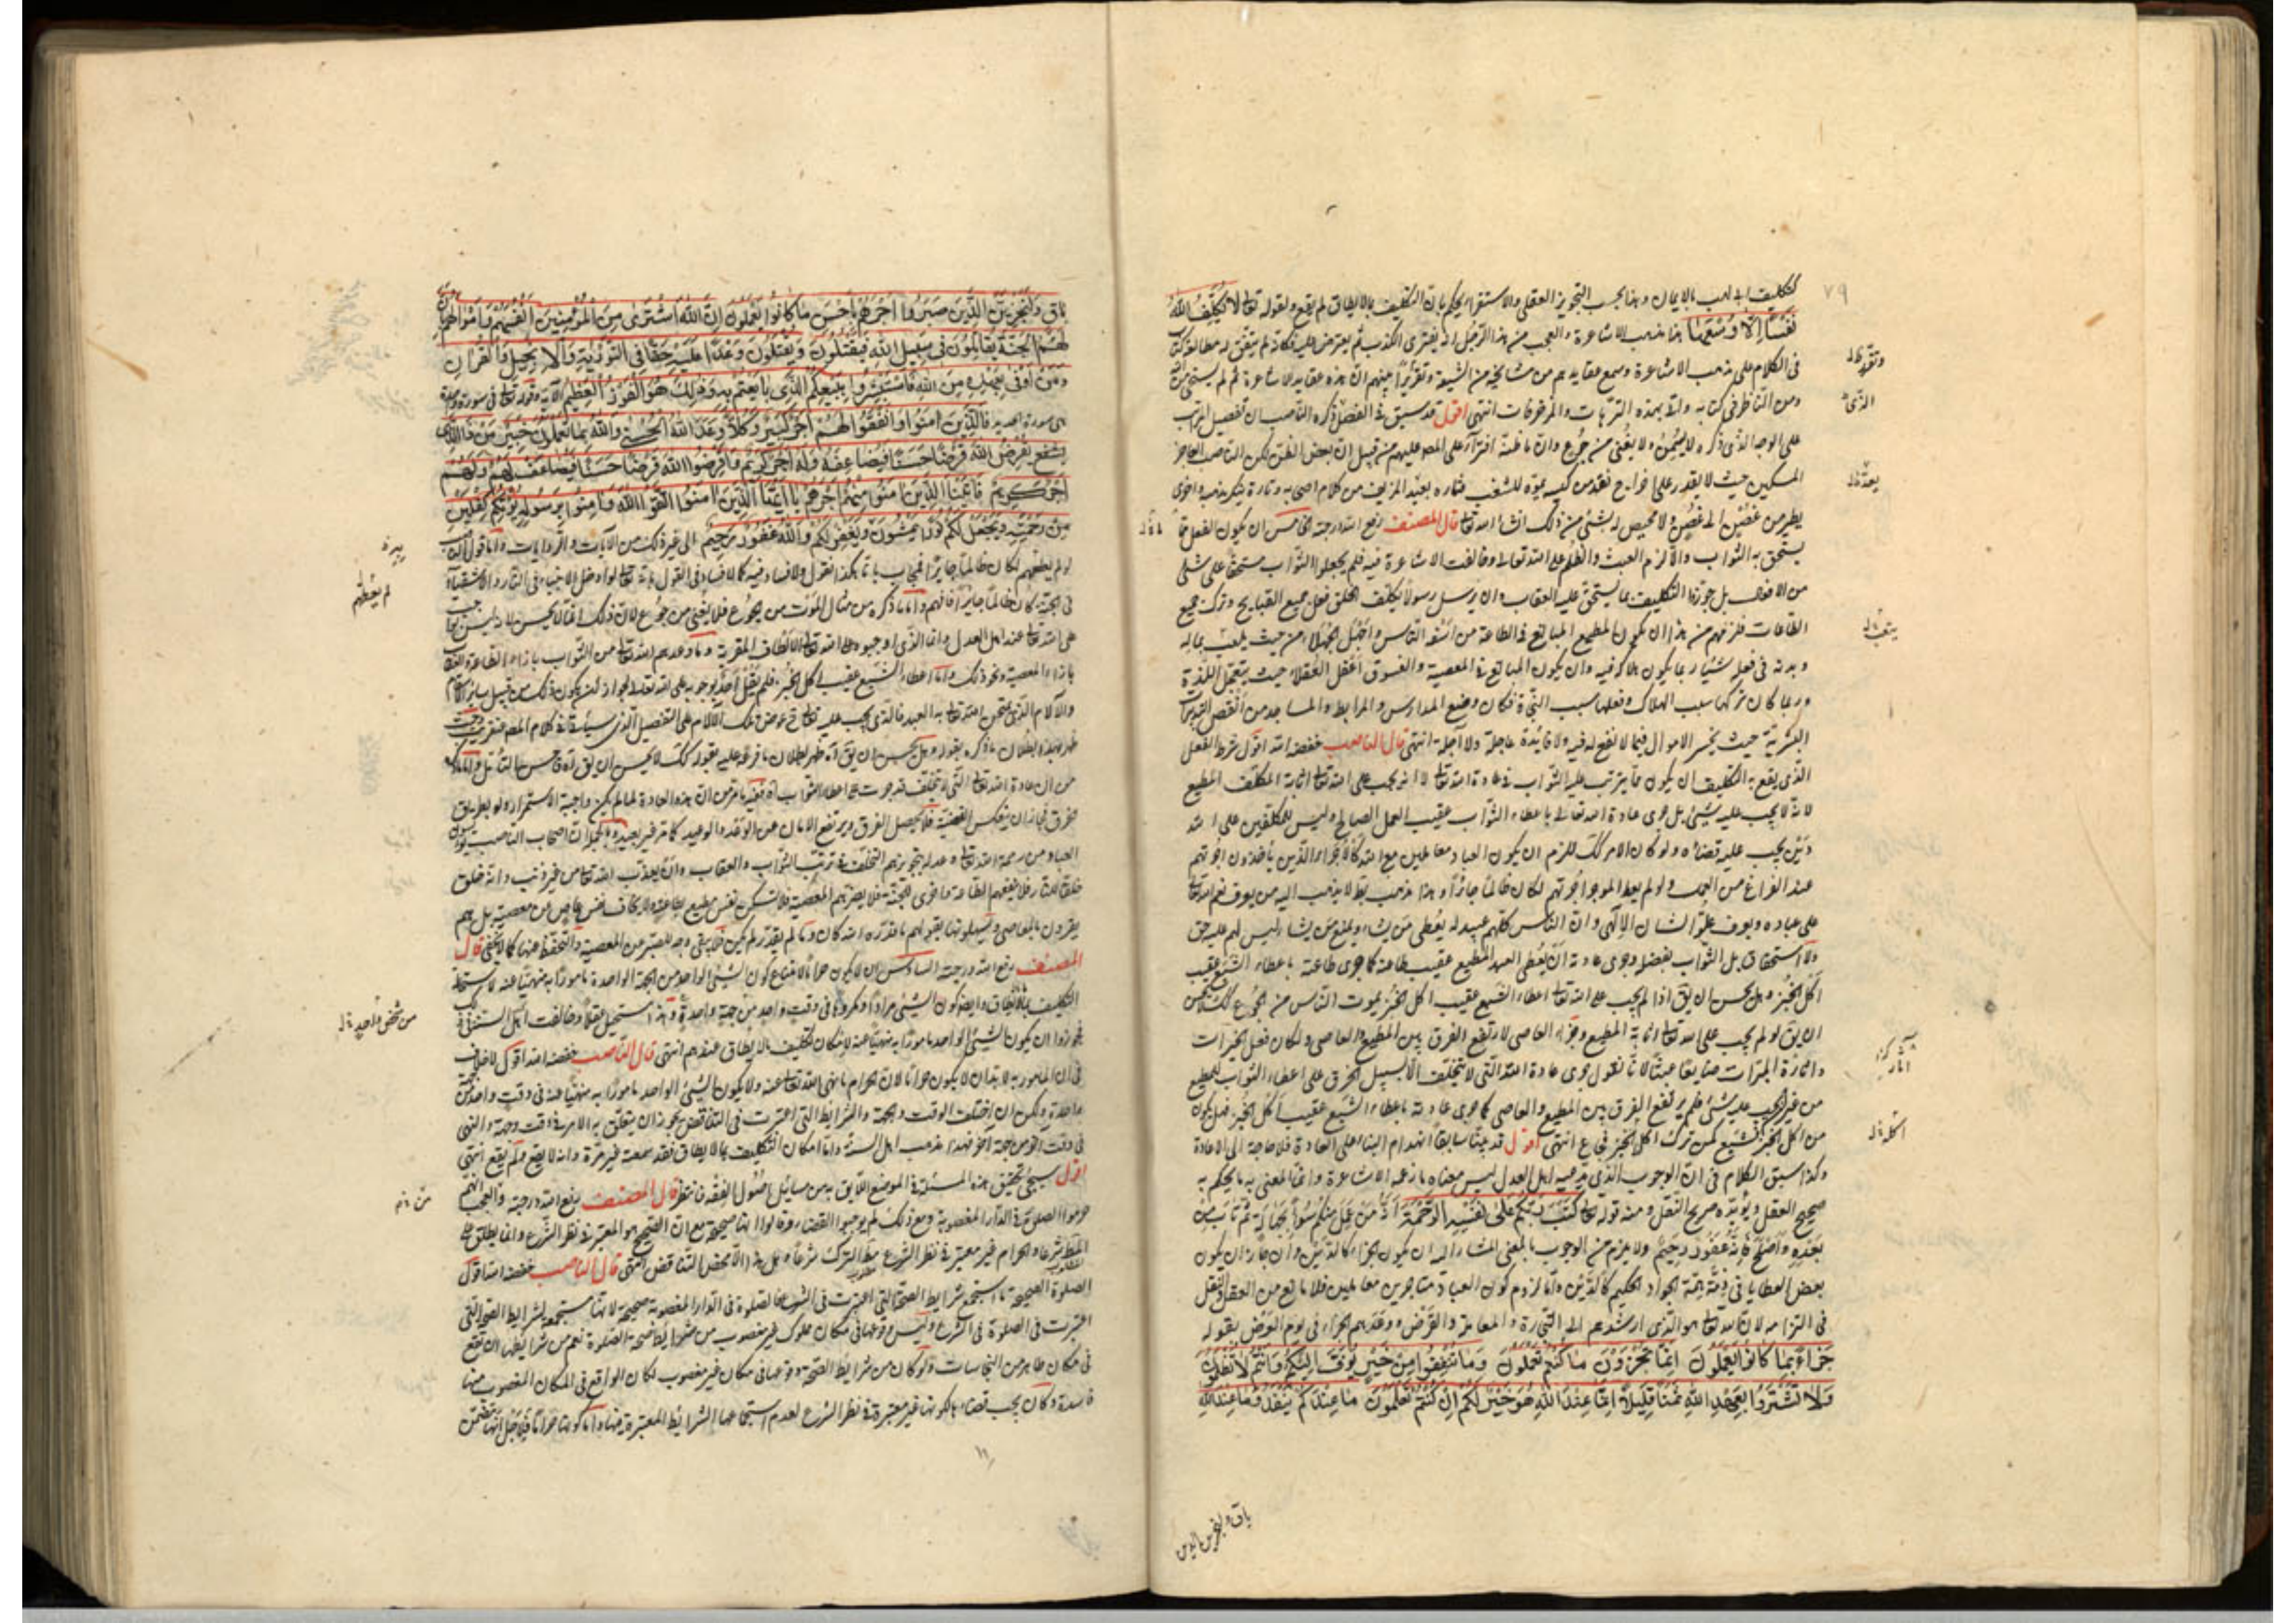 ٧٩
لتكليف ابى لهب بالايمان وهذا بحسب التجويز العقلى والاستقراء يحكم بان التكليف بما لا يطاق لم يقع ولقوله تعا لا يكلف الله
نفسا الا وسعها هذا مذهب الاشاعرة والعجب من هذا الرجل انه يفترى الكذب ثم يعترض عليه فكانه لم يتفق له مطالعة كتاب
فى الكلام على مذهب الاشاعرة وسمع عقايدهم من مشايخه من الشيعة وتقرر بينهم ان هذه عقايد الاشاعرة ثم لم يستحى من
ومن الناظر فى كتابه واتى بهذه الترهات والمزخرفات انتهى اقول قد سبق فى الفصل ذكره الناصب ان تفصيل المراتب
على الوجه الذى ذكره لا يسمن ولا يغنى من جوع وان ما ظنه افتراء على المص عليهم من قبيل ان بعض الظن لكن الناصب العاجز
المسكين حيث لا يقدر على فتارة يعيد المزيف من كلام اصحابه وتارة ينكر مذهبه واخرى
يطير من غصن الى غصن ولا محيص له بشئ من ذلك انشاء الله تعا قال المصنف رفع الله درجته الخامس ان يكون الفعل مما
يستحق به الثواب والا لزم العبث والظلم على الله تعالى وخالفت الاشاعرة فيه فلم يجعلوا الثواب مستحقا على شئ
من الافعال بل جوزوا التكليف بما يستحق عليه العقاب وان يرسل رسولا يكلف الخلق فعل جميع القبايح وترك جميع
الطاعات فلزمهم من هذا ان يكون المطيع المبالغ فى الطاعة من اسفه الناس واجهل الجهلاء من حيث يتعب بماله
وبدنه فى فعل شئ ربما يكون هلاكه فيه وان يكون المبالغ فى المعصية والفسوق اعقل العقلاء حيث يتعجل اللذة
وربما كان تركها سبب الهلاك وفعلها سبب النجاة فكان وضع المدارس والربط والمساجد من انقص التدبيرات
البشرية حيث يخسر الاموال فيما لا نفع له فيه ولا فائدة عاجلة ولا آجلة انتهى قال الناصب خفضه الله اقول شرط الفعل
الذى يقع به التكليف ان يكون مما يترتب عليه الثواب فى عادة الله تعا لا انه يجب على الله تعا اثابة المكلف المطيع
لانه لا يجب عليه شئ بل جرى عادة الله تعالى باعطاء الثواب عقيب العمل الصالح وليس للمكلفين على الله
دين يجب عليه قضاؤه ولو كان الامر كذلك للزم ان يكون العباد معاملين مع الله كالاجراء الذين ياخذون اجرتهم
عند الفراغ من العمل ولو لم يعط الموجر اجرتهم لكان ظالما جائرا وهذا مذهب بط لا يذهب اليه من يعرف نعم الله تعا
على عباده ويعرف علو الشان الالهى وان الناس كلهم عبيد له يعطى من يشاء ويمنع من يشاء وليس لهم عليه حق
ولا استحقاق بل الثواب بفضله وجرى عادته ان يعطى العبد المطيع عقيب طاعته كما جرى عادته باعطاء الشبع عقيب
اكل الخبز وهل يحسن ان يق اذا لم يجب على الله تعا اعطاء الشبع عقيب اكل الخبز يموت الناس من الجوع كذلك لا يحسن
ان يق لو لم يجب على الله تعا اثابة المطيع وجزاء العاصى لارتفع الفرق بين المطيع والعاصى ولكان فعل الخيرات
واثارة المبرات ضايعا عبثا لانا نقول جرى عادة الله التى لا تتخلف الا بسبيل الخرق على اعطاء الثواب للمطيع
من غير ان يجب عليه شئ فلم يرتفع الفرق بين المطيع والعاصى كما جرى عادته باعطاء الشبع عقيب اكل الخبز فهل يكون
من اكل الخبز فشبع كمن ترك اكل الخبز فجاع انتهى اقول قد بينا سابقا انهدام البناء على العادة فلا حاجة الى الاعادة
وكذا سبق الكلام فى ان الوجوب الذى يدعيه اهل العدل ليس معناه ما زعمه الاشاعرة وانما المعنى به ما يحكم به
صحيح العقل ويؤيده صريح النقل ومنه قوله تعا كتب ربكم على نفسه الرحمة انه من عمل منكم سوءا بجهالة ثم تاب من
بعده واصلح فانه غفور رحيم ولا يلزم من الوجوب بالمعنى المشار اليه ان يكون الجزاء كالدين وان جاز ان يكون
بعض العطايا فى ذمة همة الجواد الحكيم كالدين واما لزوم كون العباد متاجرين معاملين فلا مانع من العقل والنقل
فى التزامه لان الله تعا هو الذى ارشدهم الى التجارة والمعاملة والقرض ووعدهم الجزاء فى يوم العرض بقوله
جزاء بما كانوا يعملون انما تجزون ما كنتم تعملون وما تنفقوا من خير يوف اليكم وانتم لا تظلمون
ولا تشتروا بعهد الله ثمنا قليلا انما عند الله هو خير لكم ان كنتم تعلمون ما عندكم ينفد وما عند الله
باق ولنجزين الذين
باق ولنجزين الذين صبروا اجرهم باحسن ما كانوا يعملون ان الله اشترى من المؤمنين انفسهم واموالهم بان
لهم الجنة يقاتلون فى سبيل الله فيقتلون ويقتلون وعدا عليه حقا فى التورية والانجيل والقران
ومن اوفى بعهده من الله فاستبشروا ببيعكم الذى بايعتم به وذلك هو الفوز العظيم الآية وقوله تعا فى سورة
فالذين امنوا وانفقوا لهم اجر كبير وكلا وعد الله الحسنى والله بما تعملون خبير من ذا الذى
يقرض الله قرضا حسنا فيضاعفه وله اجر كريم واقرضوا الله قرضا حسنا يضاعف لهم ولهم
اجر كريم فاتينا الذين امنوا منهم اجرهم يا ايها الذين امنوا اتقوا الله وامنوا برسوله يؤتكم كفلين
من رحمته ويجعل لكم نورا تمشون به ويغفر لكم والله غفور رحيم الى غير ذلك من الآيات والروايات واما قوله انه
لو لم يعطهم لكان ظالما جائرا فيجاب بانا هكذا نقول ولا فساد فيه كما لا فساد فى القول بانه تعا لو ادخل الانبياء فى النار والاشقياء
فى الجنة كان ظالما جائرا فافهم واما ما ذكره من مثال الموت من الجوع فلا يغنى من جوع لان ذلك انما لا يحسن لانه ليس بواجب
على الله تعا عند اهل العدل وانما الذى اوجبوه على الله تعا الالطاف المقربة وما وعدهم الله تعا من الثواب بازاء الطاعة والعقاب
بازاء المعصية ونحو ذلك واما اعطاء الشبع عقيب اكل الخبز فلم يقل احد بوجوبه على الله تعا
والآلام الذى يمتحن الله تعا به العبد فالذى يجب عليه تعا ح عوض ذلك الآلام على التفصيل الذى سيأتى فى كلام المص
ظهر بطلان ما ذكره بقوله وهل يحسن ان يق اه ظهر بطلان ما فرعه عليه بقوله كذلك لا يحسن ان يق
من ان عادة الله تعا التى لا تتخلف قد جرت على اعطاء الثواب اه ففيه ما مر من ان هذه العادة لما لم يكن واجبة الاستمرار ولو بطريق
خرق فجاز ان ينعكس القضية فلا يحصل الفرق ويرتفع الامان عن الوعد والوعيد كما مر غير بعيد وبالجملة ان اصحاب الناصب
العباد من رحمة الله تعا وعدله بتجويزهم التخلف فى ترتب الثواب والعقاب وان يعذب الله تعا من غير ذنب وانه خلق
خلقا للنار فلا ينفعهم الطاعة واخرى للجنة فلا يضرهم المعصية فلا تسكن نفس مطيع بطاعته ولا يخاف نفس عاص من معصية بل هم
يغرون بالمعاصى ويسهلونها بقولهم ما قدره الله كان وما لم يقدر لم يكن فما يبقى وجه للتحرز عن المعصية والتحفظ عنها كما لا يخفى قال
المصنف رفع الله درجته السادس ان لا يكون حراما لامتناع كون الشئ الواحد من الجهة الواحدة مامورا به منهيا عنه لاستحالة
التكليف بما لا يطاق وايضا كون الشئ مرادا ومكروها فى وقت واحد من جهة واحدة وهذا مستحيل عقلا وخالفت اهل السنة فى ذلك
فجوزوا ان يكون الشئ الواحد مامورا به منهيا عنه لامكان تكليف ما لا يطاق عندهم انتهى قال الناصب خفضه الله اقول لا خلاف
فى ان المامور به لا بد ان لا يكون حراما لان الحرام ما نهى الله تعا عنه ولا يكون الشئ الواحد مامورا به منهيا عنه فى وقت واحد من جهة
واحدة ولكن ان اختلف الوقت والجهة والشرايط التى اعتبرت فى التناقض يجوز ان يتعلق به الامر فى وقت وجهة والنهى
فى وقت آخر من جهة اخرى فهذا مذهب اهل السنة واما امكان التكليف بما لا يطاق فقد سمعته غير مرة وانه لا يقع ولم يقع انتهى
اقول سيجئ تحقيق هذه المسئلة فى الموضع اللايق به من مسائل اصول الفقه فانتظر قال المصنف رفع الله درجته والعجب انهم
حرموا الصلوة فى الدار المغصوبة ومع ذلك لم يوجبوا القضاء وقالوا انها صحيحة مع ان الصحيح هو المعتبر فى نظر الشرع وانما يطلق على
المطلوب شرعا والحرام غير معتبر فى نظر الشرع مطلوب الترك شرعا وهل هذا الا محض التناقض انتهى قال الناصب خفضه الله اقول
الصلوة الصحيحة ما استجمع شرايط الصحة التى اعتبرت فى الشرع فالصلوة فى الدار المغصوبة صحيحة لانها مستجمعة لشرايط الصحة التى
اعتبرت فى الصلوة فى الشرع وليس وقوعها فى مكان مملوك غير مغصوب من شرايط صحة الصلوة نعم من شرايطها ان تقع
فى مكان طاهر من النجاسات ولو كان من شرايط الصحة وقوعها فى مكان غير مغصوب لكان الواقع فى المكان المغصوب منها
فاسدة وكان يجب قضاؤها لكونها غير معتبرة فى نظر الشرع لعدم استجماعها الشرايط المعتبرة فيها واما كونها حراما فلاجل انها تتضمن
لم يعطهم
من شخص واحد